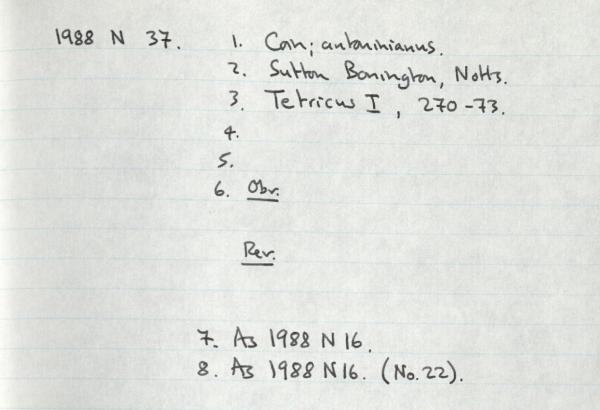 1988 N 37. 1. Coin; antoninianus.
2. Sutton Bonington, Notts.
3. Tetricus I, 270-73.
4.
5.
6. Obv.
Rev.
7. As 1988 N 16.
8. As 1988 N 16. (No. 22).